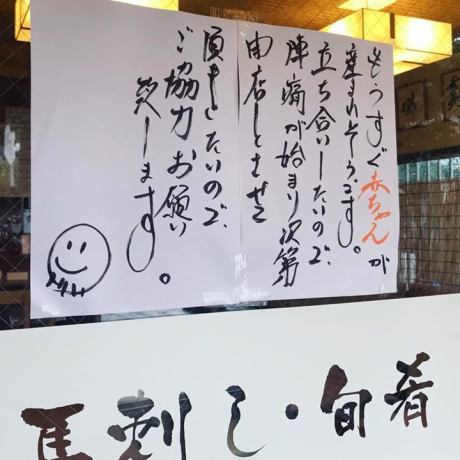 もうすぐ赤ちゃんが
産まれそうです。
立ち合いしたいので、
陣痛が始まり次第
閉店とさせて
頂きたいので、
ご協力、お願い
致します。
馬刺し・旬肴